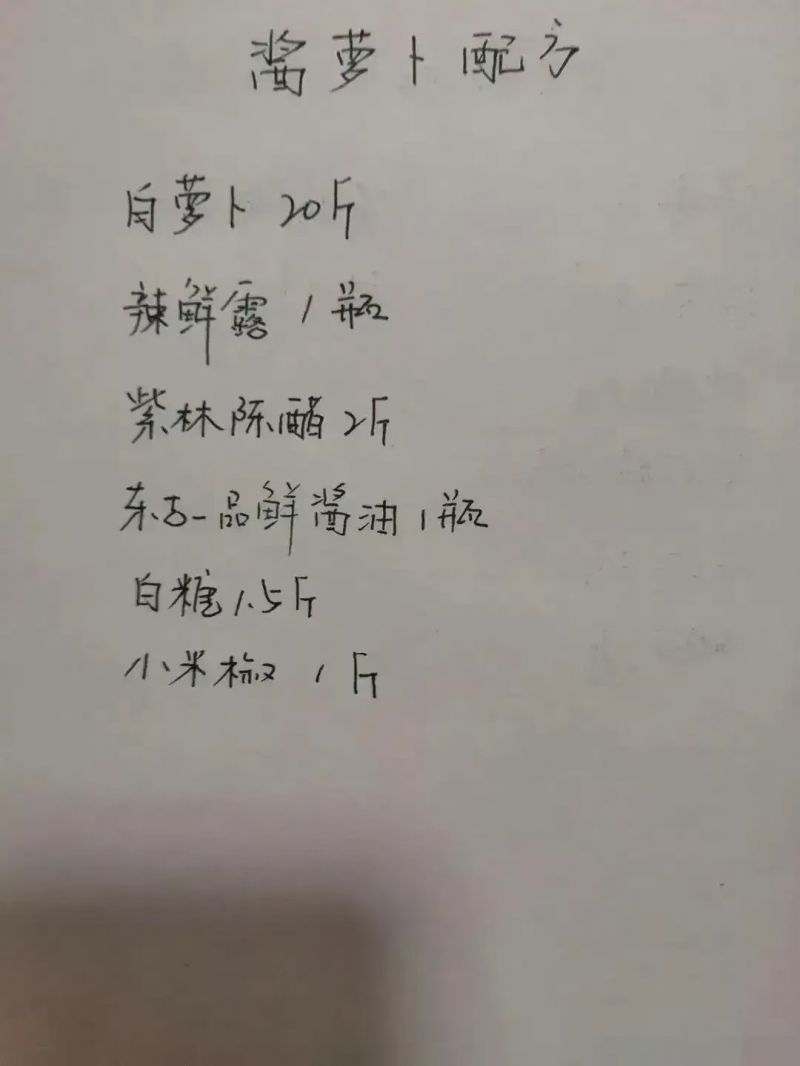 酱萝卜配方
白萝卜20斤
辣鲜露1瓶
紫林陈醋2斤
东古一品鲜酱油1瓶
白糖1.5斤
小米椒1斤